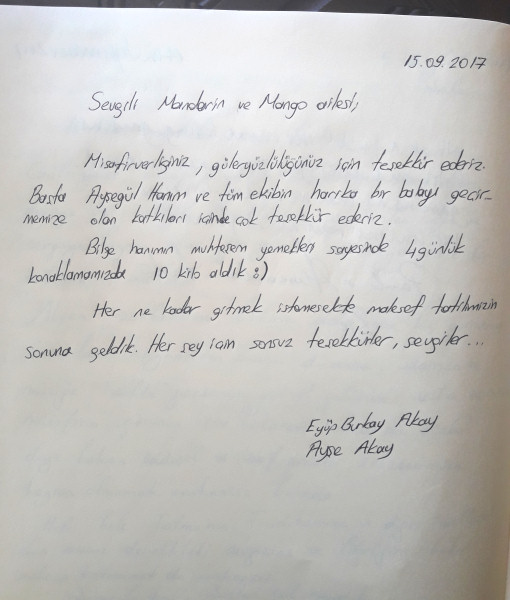 15.09.2017
Sevgili Mandarin ve Mango ailesi,
Misafirverliğiniz, güleryüzlülüğünüz için teşekkür ederiz.
Başta Ayşegül Hanım ve tüm ekibin harika bir balayı geçir-
memize olan katkıları içinde çok teşekkür ederiz.
Bilge hanımın muhteşem yemekleri sayesinde 4 günlük
konaklamamızda 10 kilo aldık :)
Her ne kadar gitmek istemesekte malesef tatilimizin
sonuna geldik. Her şey için sonsuz teşekkürler, sevgiler...
Eyüp Burkay Akay
Ayşe Akay